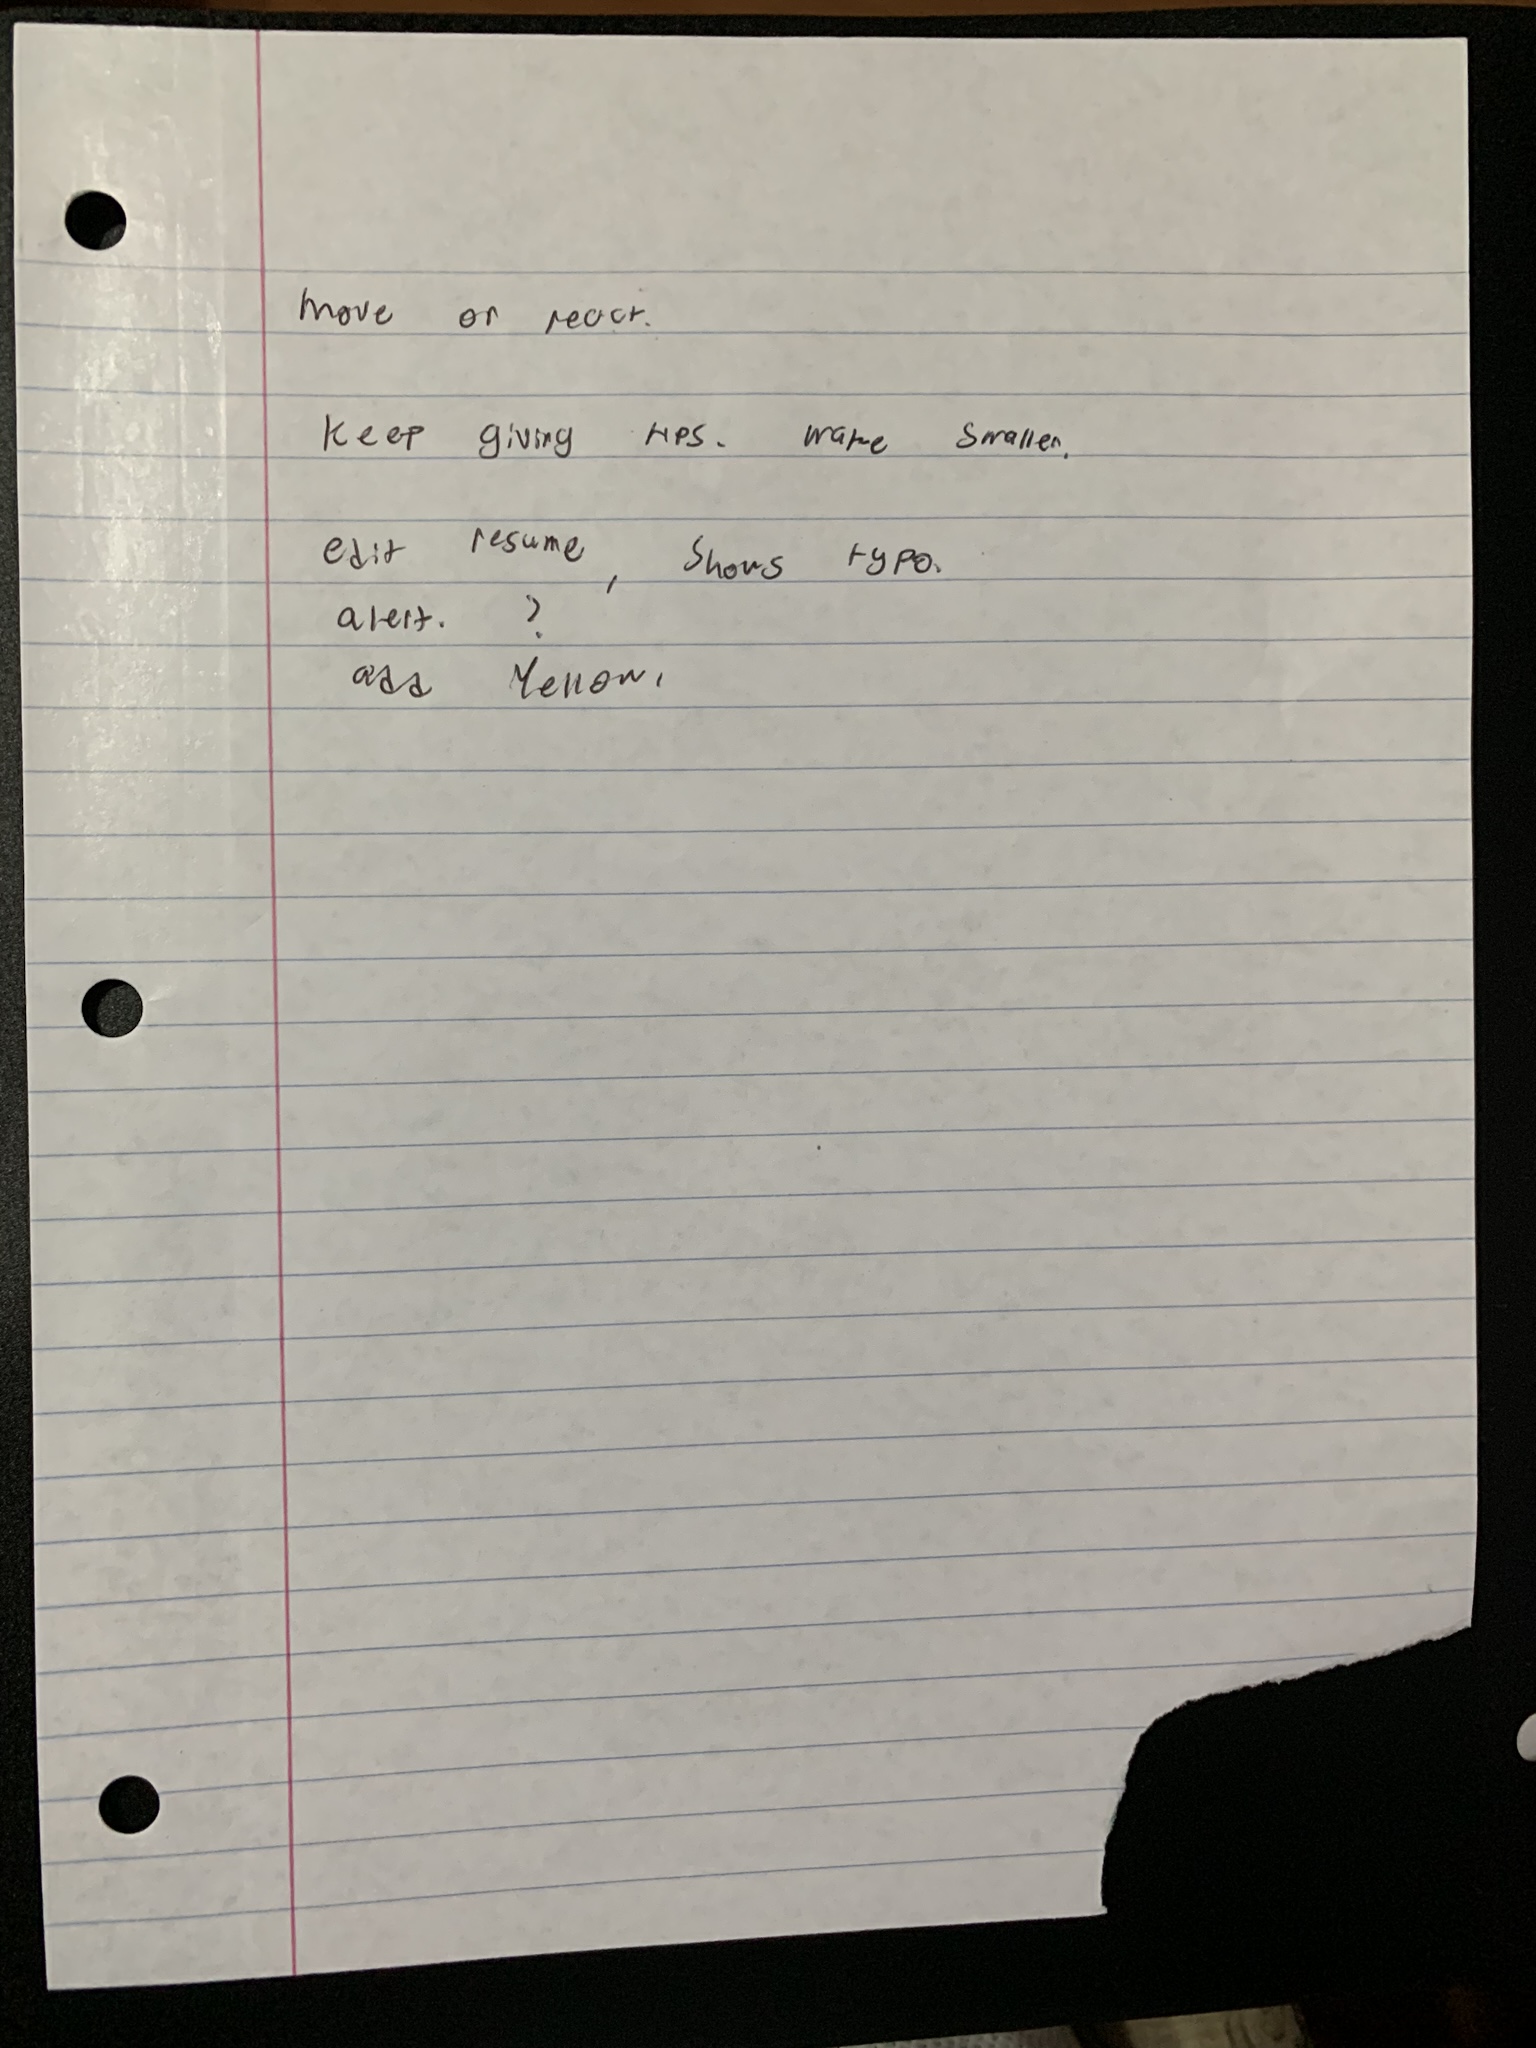 move or react.
Keep giving tips. make smaller.
edit resume, shows typo.
alert. ?
add Yellow.